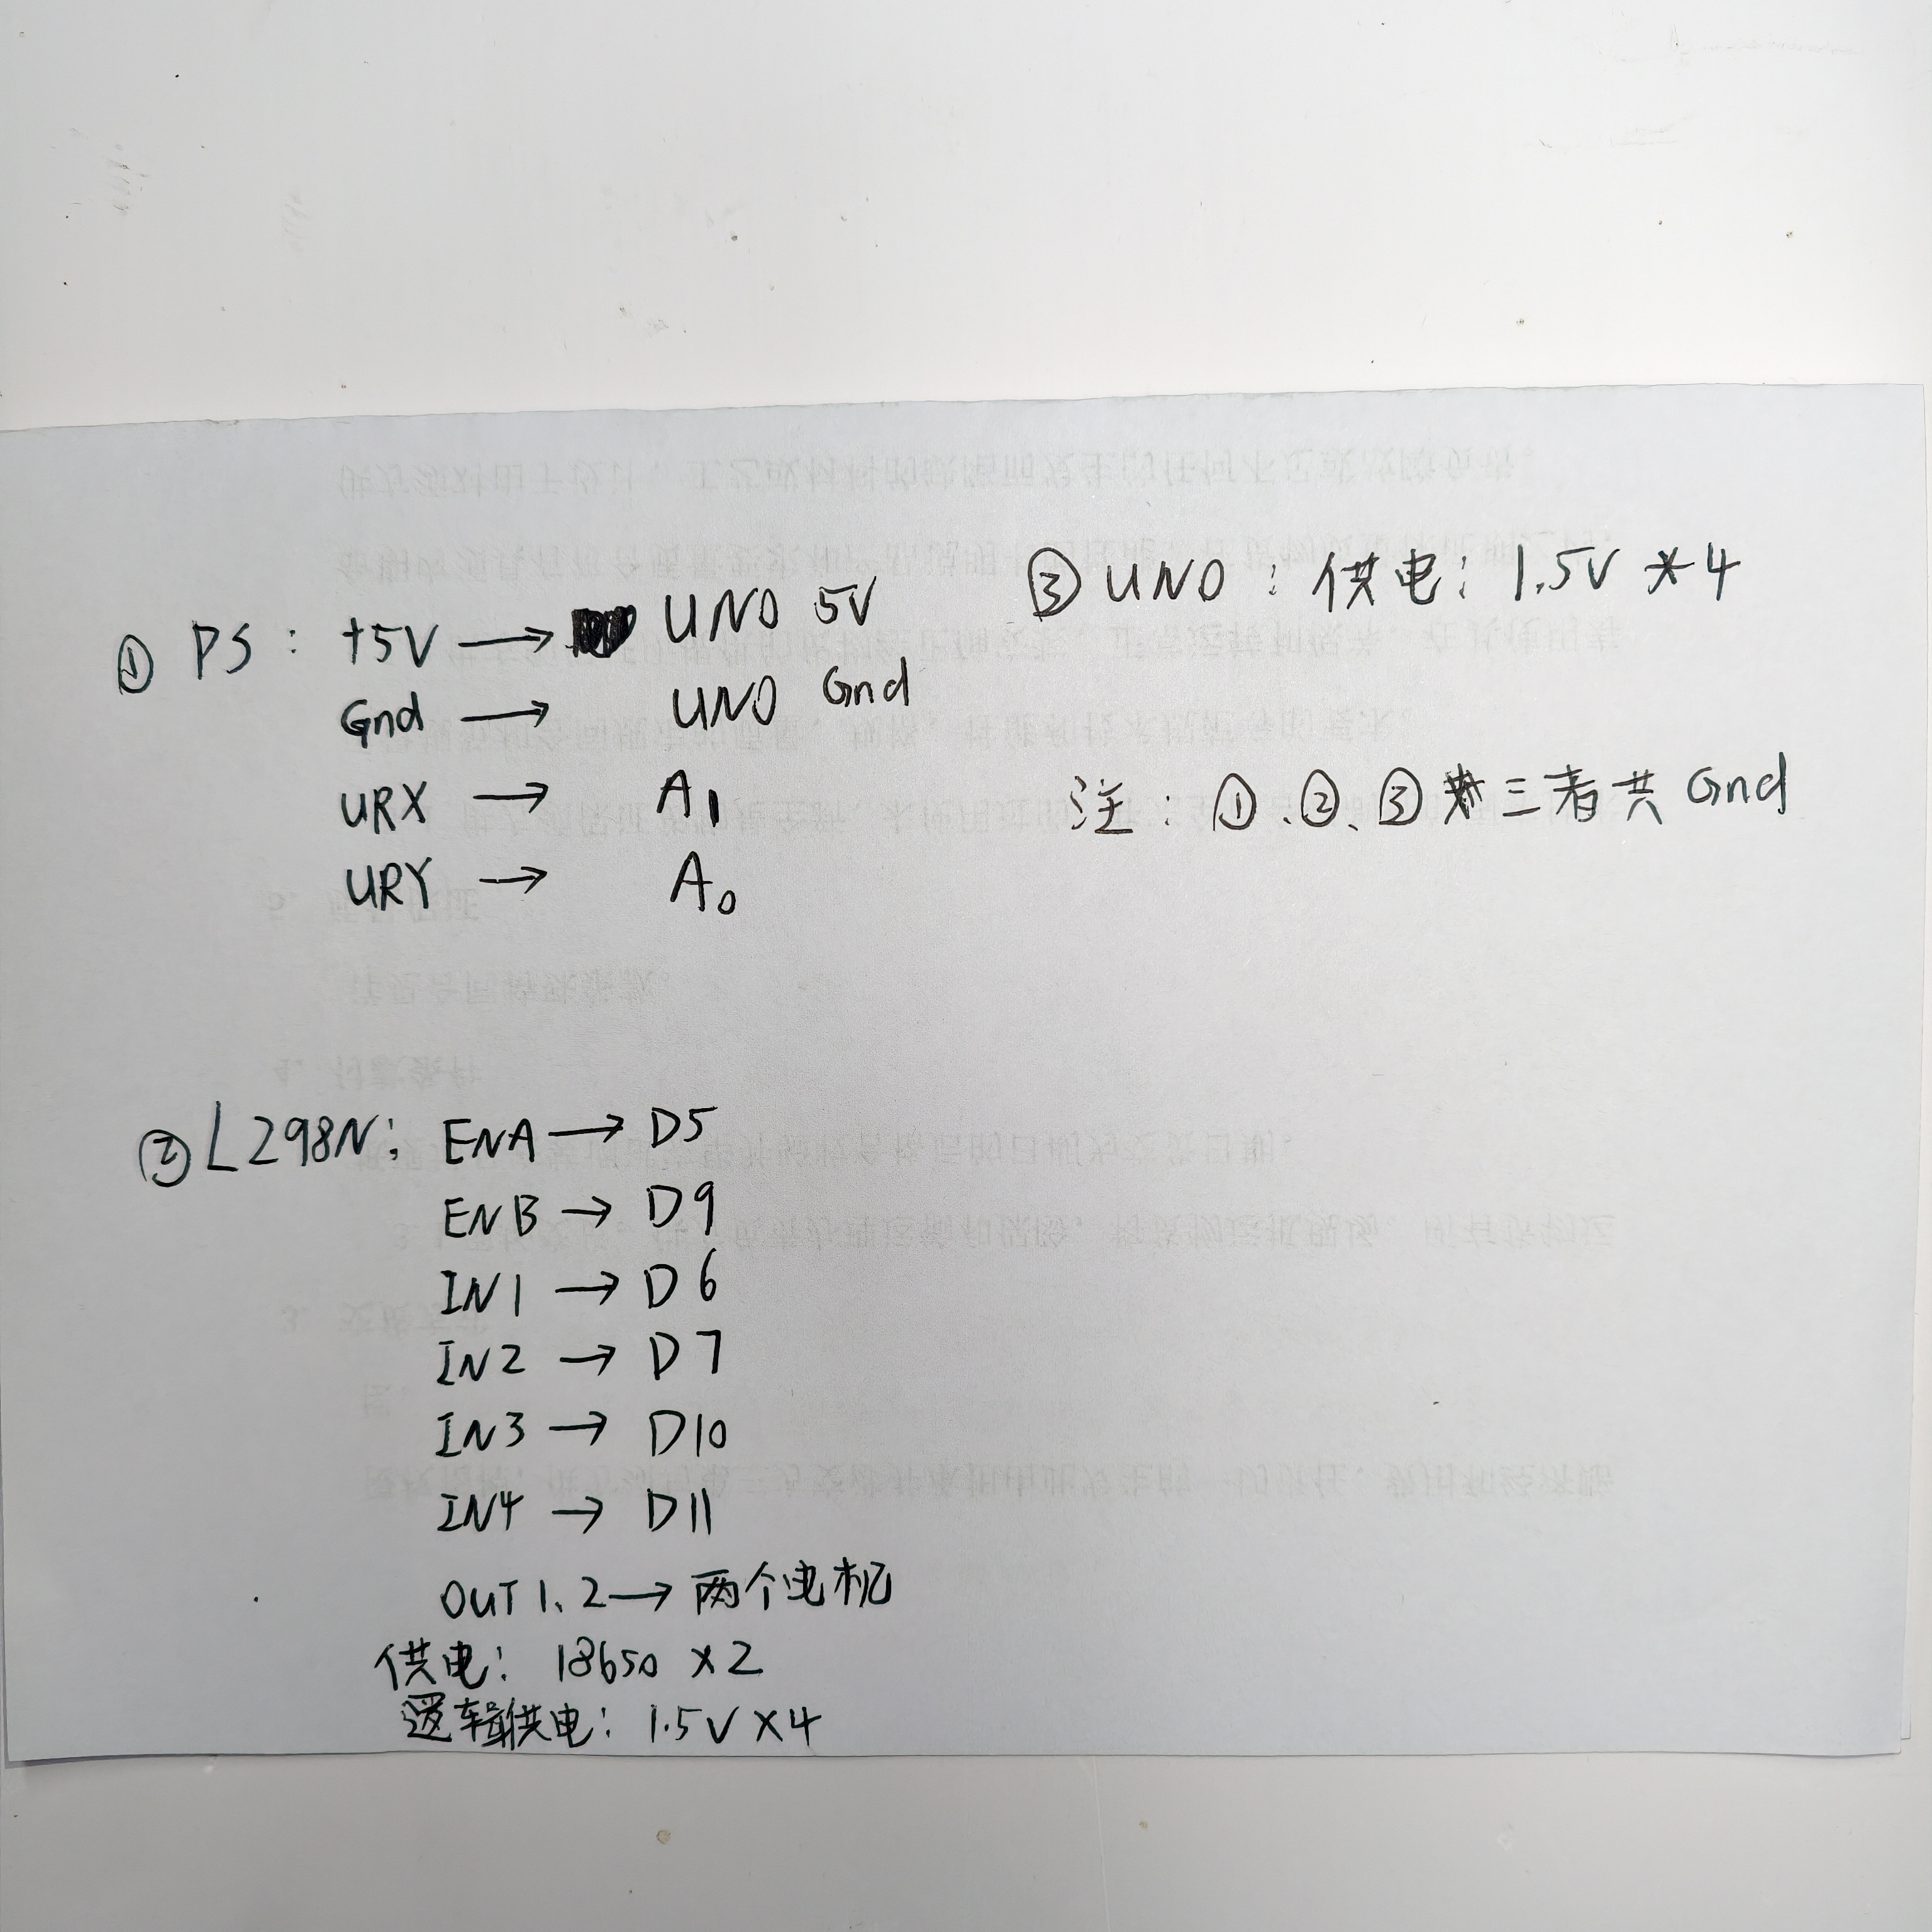 ① PS: +5V → UNO 5V
Gnd → UNO Gnd
URX → A1
URY → A0
② L298N: ENA → D5
ENB → D9
IN1 → D6
IN2 → D7
IN3 → D10
IN4 → D11
OUT1、2 → 两个电机
供电: 18650 ×2
逻辑供电: 1.5V ×4
③ UNO: 供电: 1.5V *4
注: ①、②、③ 三者共 Gnd